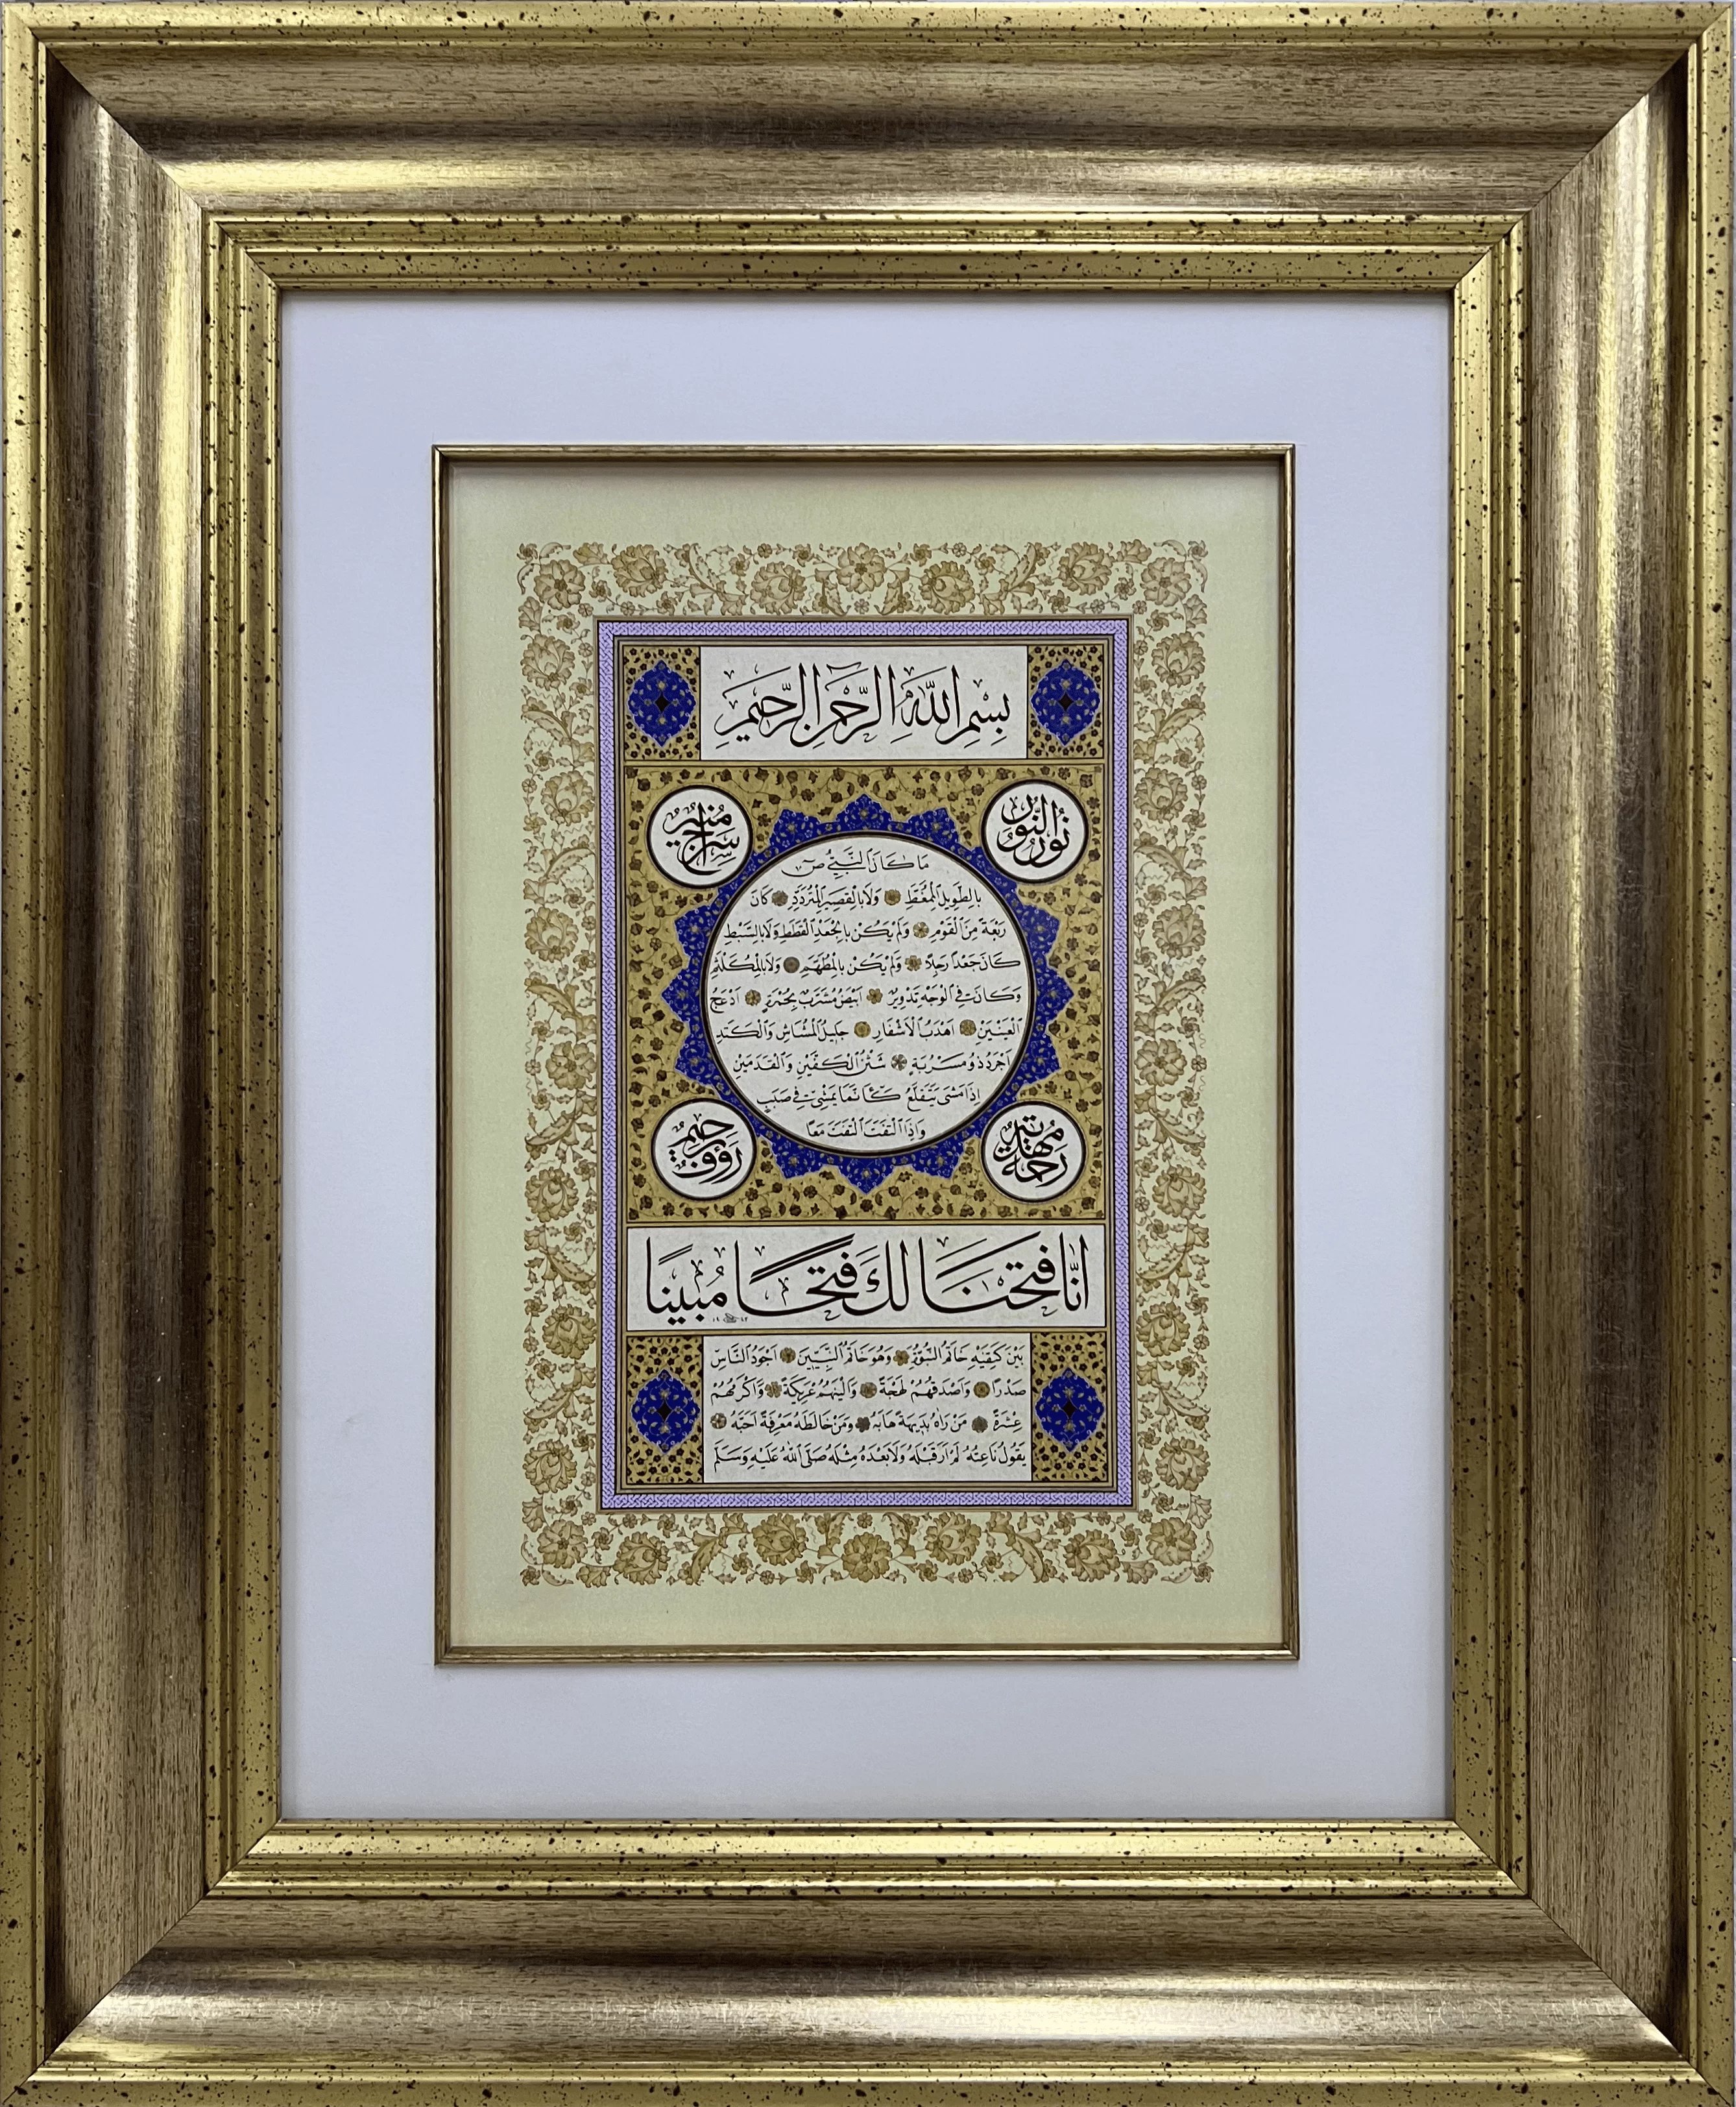 بِسْمِ اللّٰهِ الرَّحْمٰنِ الرَّحِيمِ
نُورُ النُّورِ
سِرَاجٌ مُنِيرٌ
مَا كَانَ النَّبِيُّ ص
بِالطَّوِيلِ الْمُمَّغِطِ وَلَا بِالْقَصِيرِ الْمُتَرَدِّدِ كَانَ
رَبْعَةً مِنَ الْقَوْمِ وَلَمْ يَكُنْ بِالْجَعْدِ الْقَطَطِ وَلَا بِالسَّبْطِ
كَانَ جَعْدًا رَجِلًا وَلَمْ يَكُنْ بِالْمُطَهَّمِ وَلَا بِالْمُكَلْثَمِ
وَكَانَتْ فِي الْوَجْهِ تَدْوِيرٌ اَبْيَضُ مُشْرَبٌ بِحُمْرَةٍ اَدْعَجُ
الْعَيْنَيْنِ اَهْدَبُ الْاَشْفَارِ جَلِيلُ الْمُشَاشِ وَالْكَتَدِ
اَجْرَدُ ذُو مَسْرُبَةٍ شَثْنُ الْكَفَّيْنِ وَالْقَدَمَيْنِ
اِذَا مَشَى يَتَقَلَّعُ كَاَنَّمَا يَمْشِي فِي صَبَبٍ
وَاِذَا الْتَفَتَ الْتَفَتَ مَعًا
رَحْمَةٌ مُهْدَاةٌ
رَؤُفٌ رَحِيمٌ
اِنَّا فَتَحْنَا لَكَ فَتْحًا مُبِينًا
بَيْنَ كَتِفَيْهِ خَاتَمُ النُّبُوَّةِ وَهُوَ خَاتَمُ النَّبِيِّينَ اَجْوَدُ النَّاسِ
صَدْرًا وَاَصْدَقُهُمْ لَهْجَةً وَاَلْيَنُهُمْ عَرِيكَةً وَاَكْرَمُهُمْ
عِشْرَةً مَنْ رَاٰهُ بَدِيهَةً هَابَهُ وَمَنْ خَالَطَهُ مَعْرِفَةً اَحَبَّهُ
يَقُولُ نَاعِتُهُ لَمْ اَرَ قَبْلَهُ وَلَا بَعْدَهُ مِثْلَهُ صَلَّى اللّٰهُ عَلَيْهِ وَسَلَّمَ